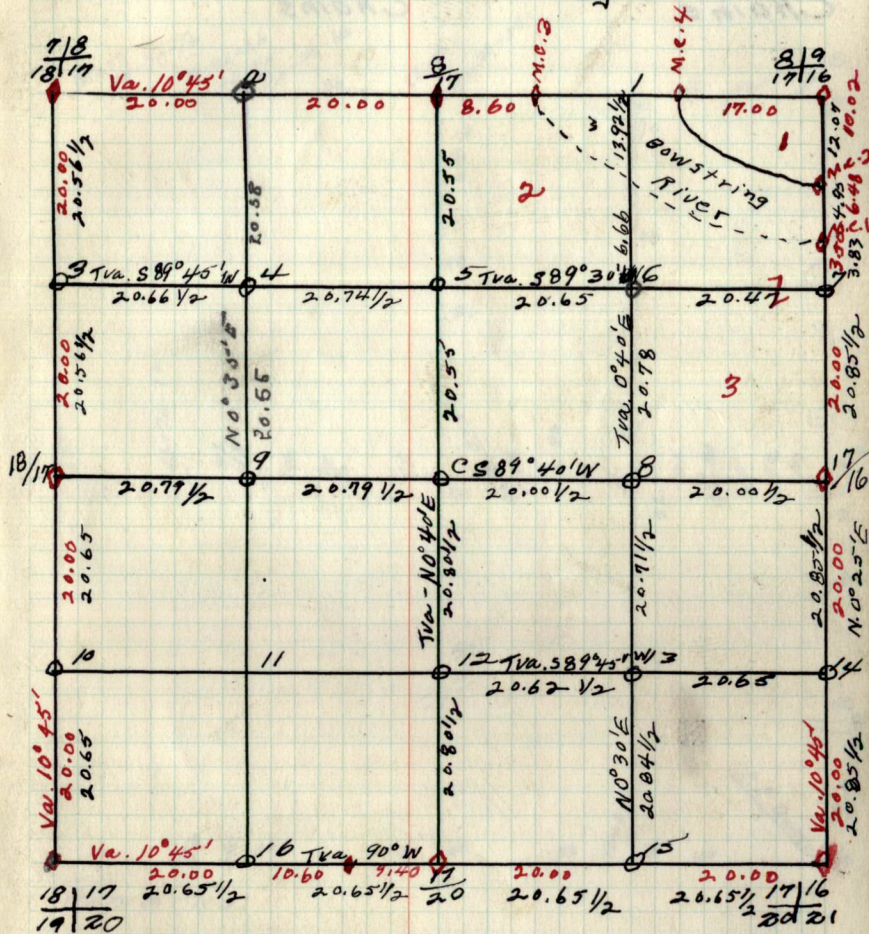 7|8
18|17
Va. 10°45'
20.00
2
20.00
8
17
8.60
M.C. 3
1
M.C. 4
17.00
8|9
17|16
20.00
20.56 1/2
20.58
20.55
2
3
13.92 1/2
6.66
Bowstring
River
1
12.07
10.02
4.95
6.48
3.83
3 Tva. S89°45'W
20.66 1/2
4
20.74 1/2
5 Tva. S89°30'W
20.65
6
20.47
7
20.00
20.56 1/2
N0°35'E
20.55
20.55
Tva. 0°40'E
20.78
3
20.00
20.85 1/2
18/17
20.79 1/2
9
20.79 1/2
C S89°40'W
20.00 1/2
8
20.00 1/2
17/16
20.00
20.65
Tva-N0°40'E
20.80 1/2
20.71 1/2
20.85 1/2
20.00
N.0°25'E
10
11
12 Tva. S89°45'W
20.62 1/2
13
20.65
14
Va. 10°45'
20.00
20.65
20.80 1/2
N0°30'E
20.84 1/2
Va. 10°45'
20.00
20.85 1/2
Va. 10°45'
20.00
16
Tva. 90°W
10.60
9.40
17
20
20.00
15
20.00
20.65 1/2
20.65 1/2
20.65 1/2
20.65 1/2
18|17
19|20
17|16
20|21